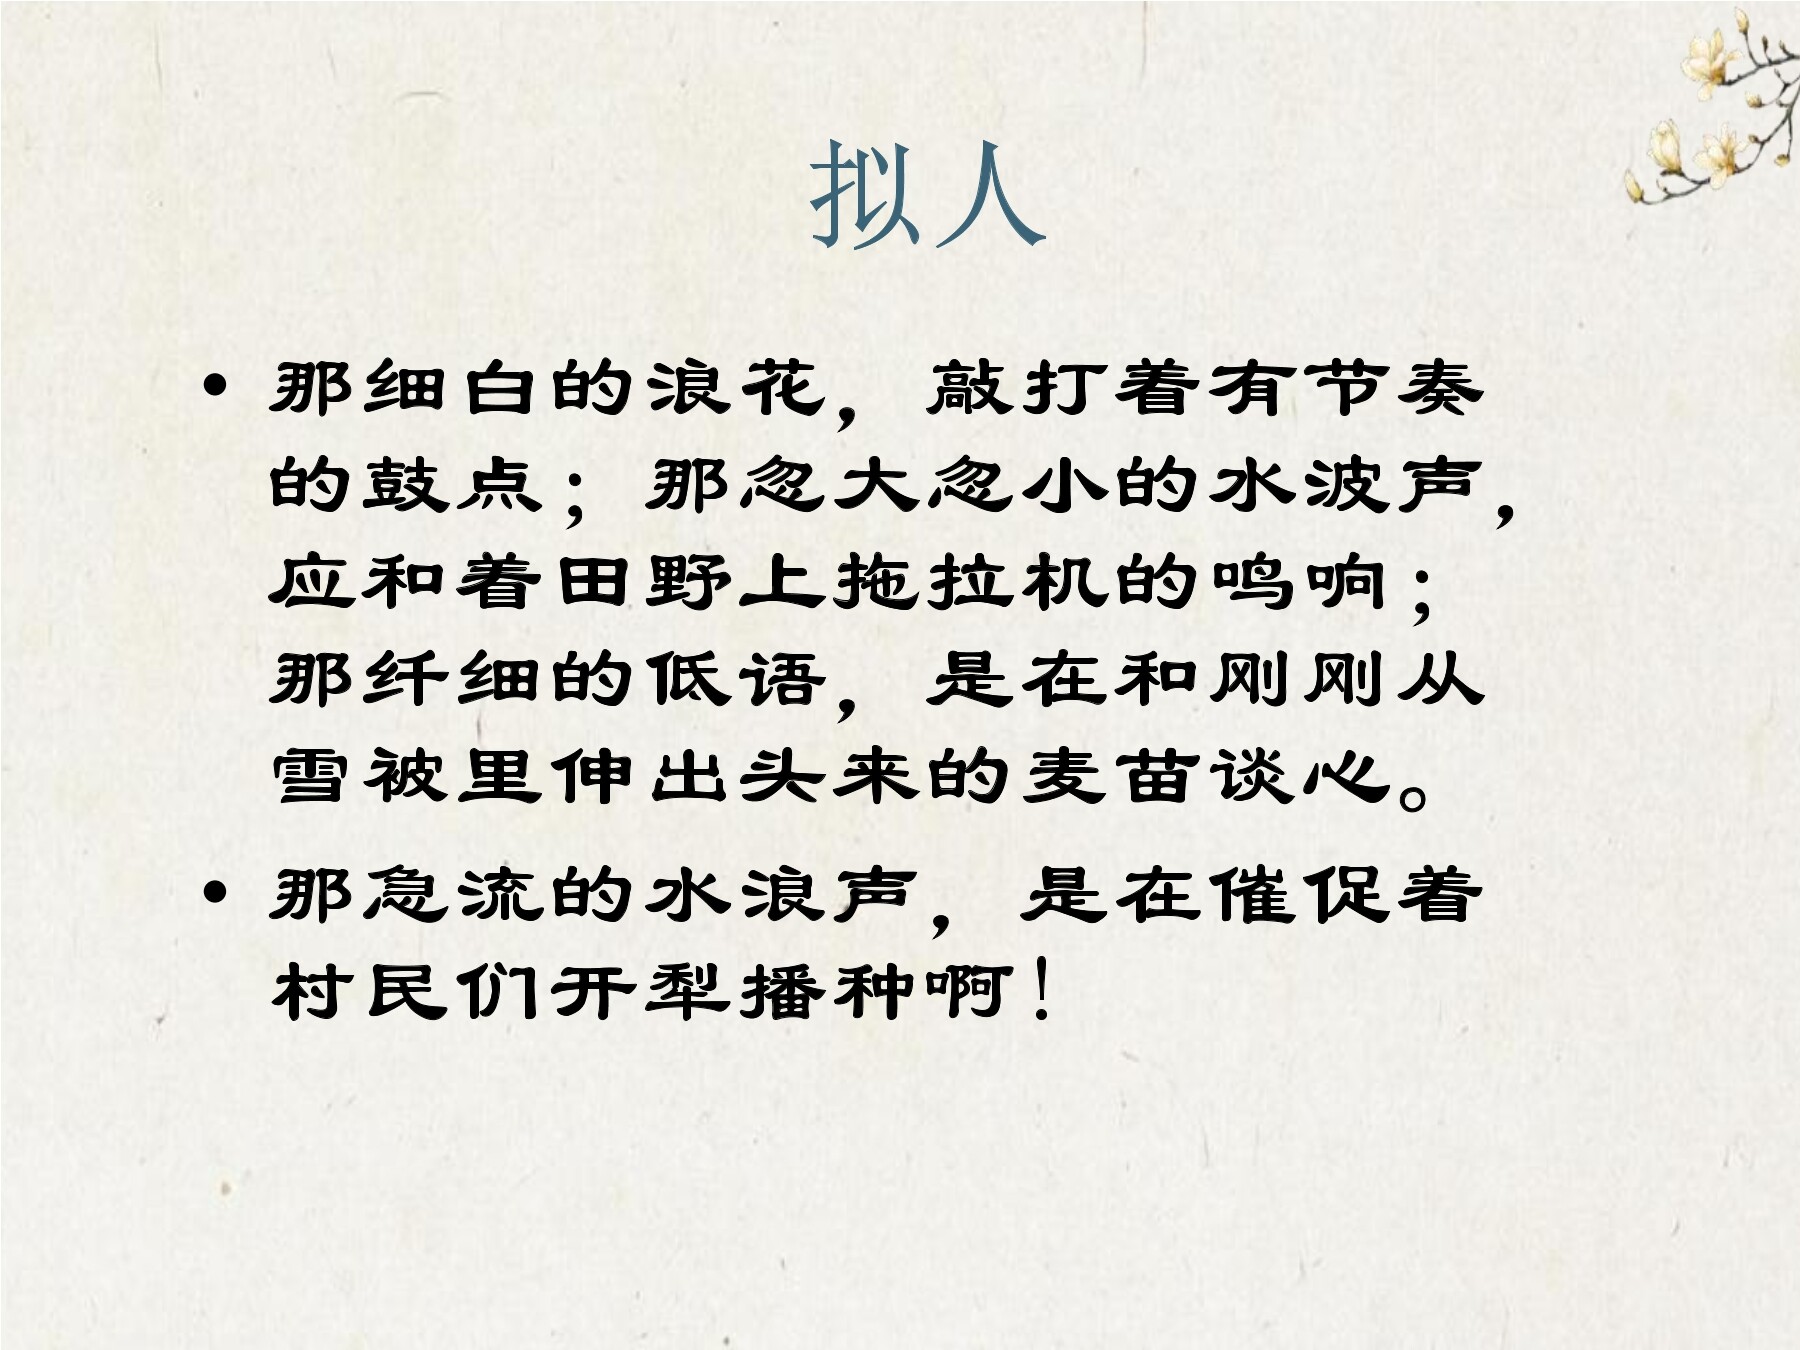 拟人
• 那细白的浪花，敲打着有节奏
的鼓点；那忽大忽小的水波声，
应和着田野上拖拉机的鸣响；
那纤细的低语，是在和刚刚从
雪被里伸出头来的麦苗谈心。
• 那急流的水浪声，是在催促着
村民们开犁播种啊！